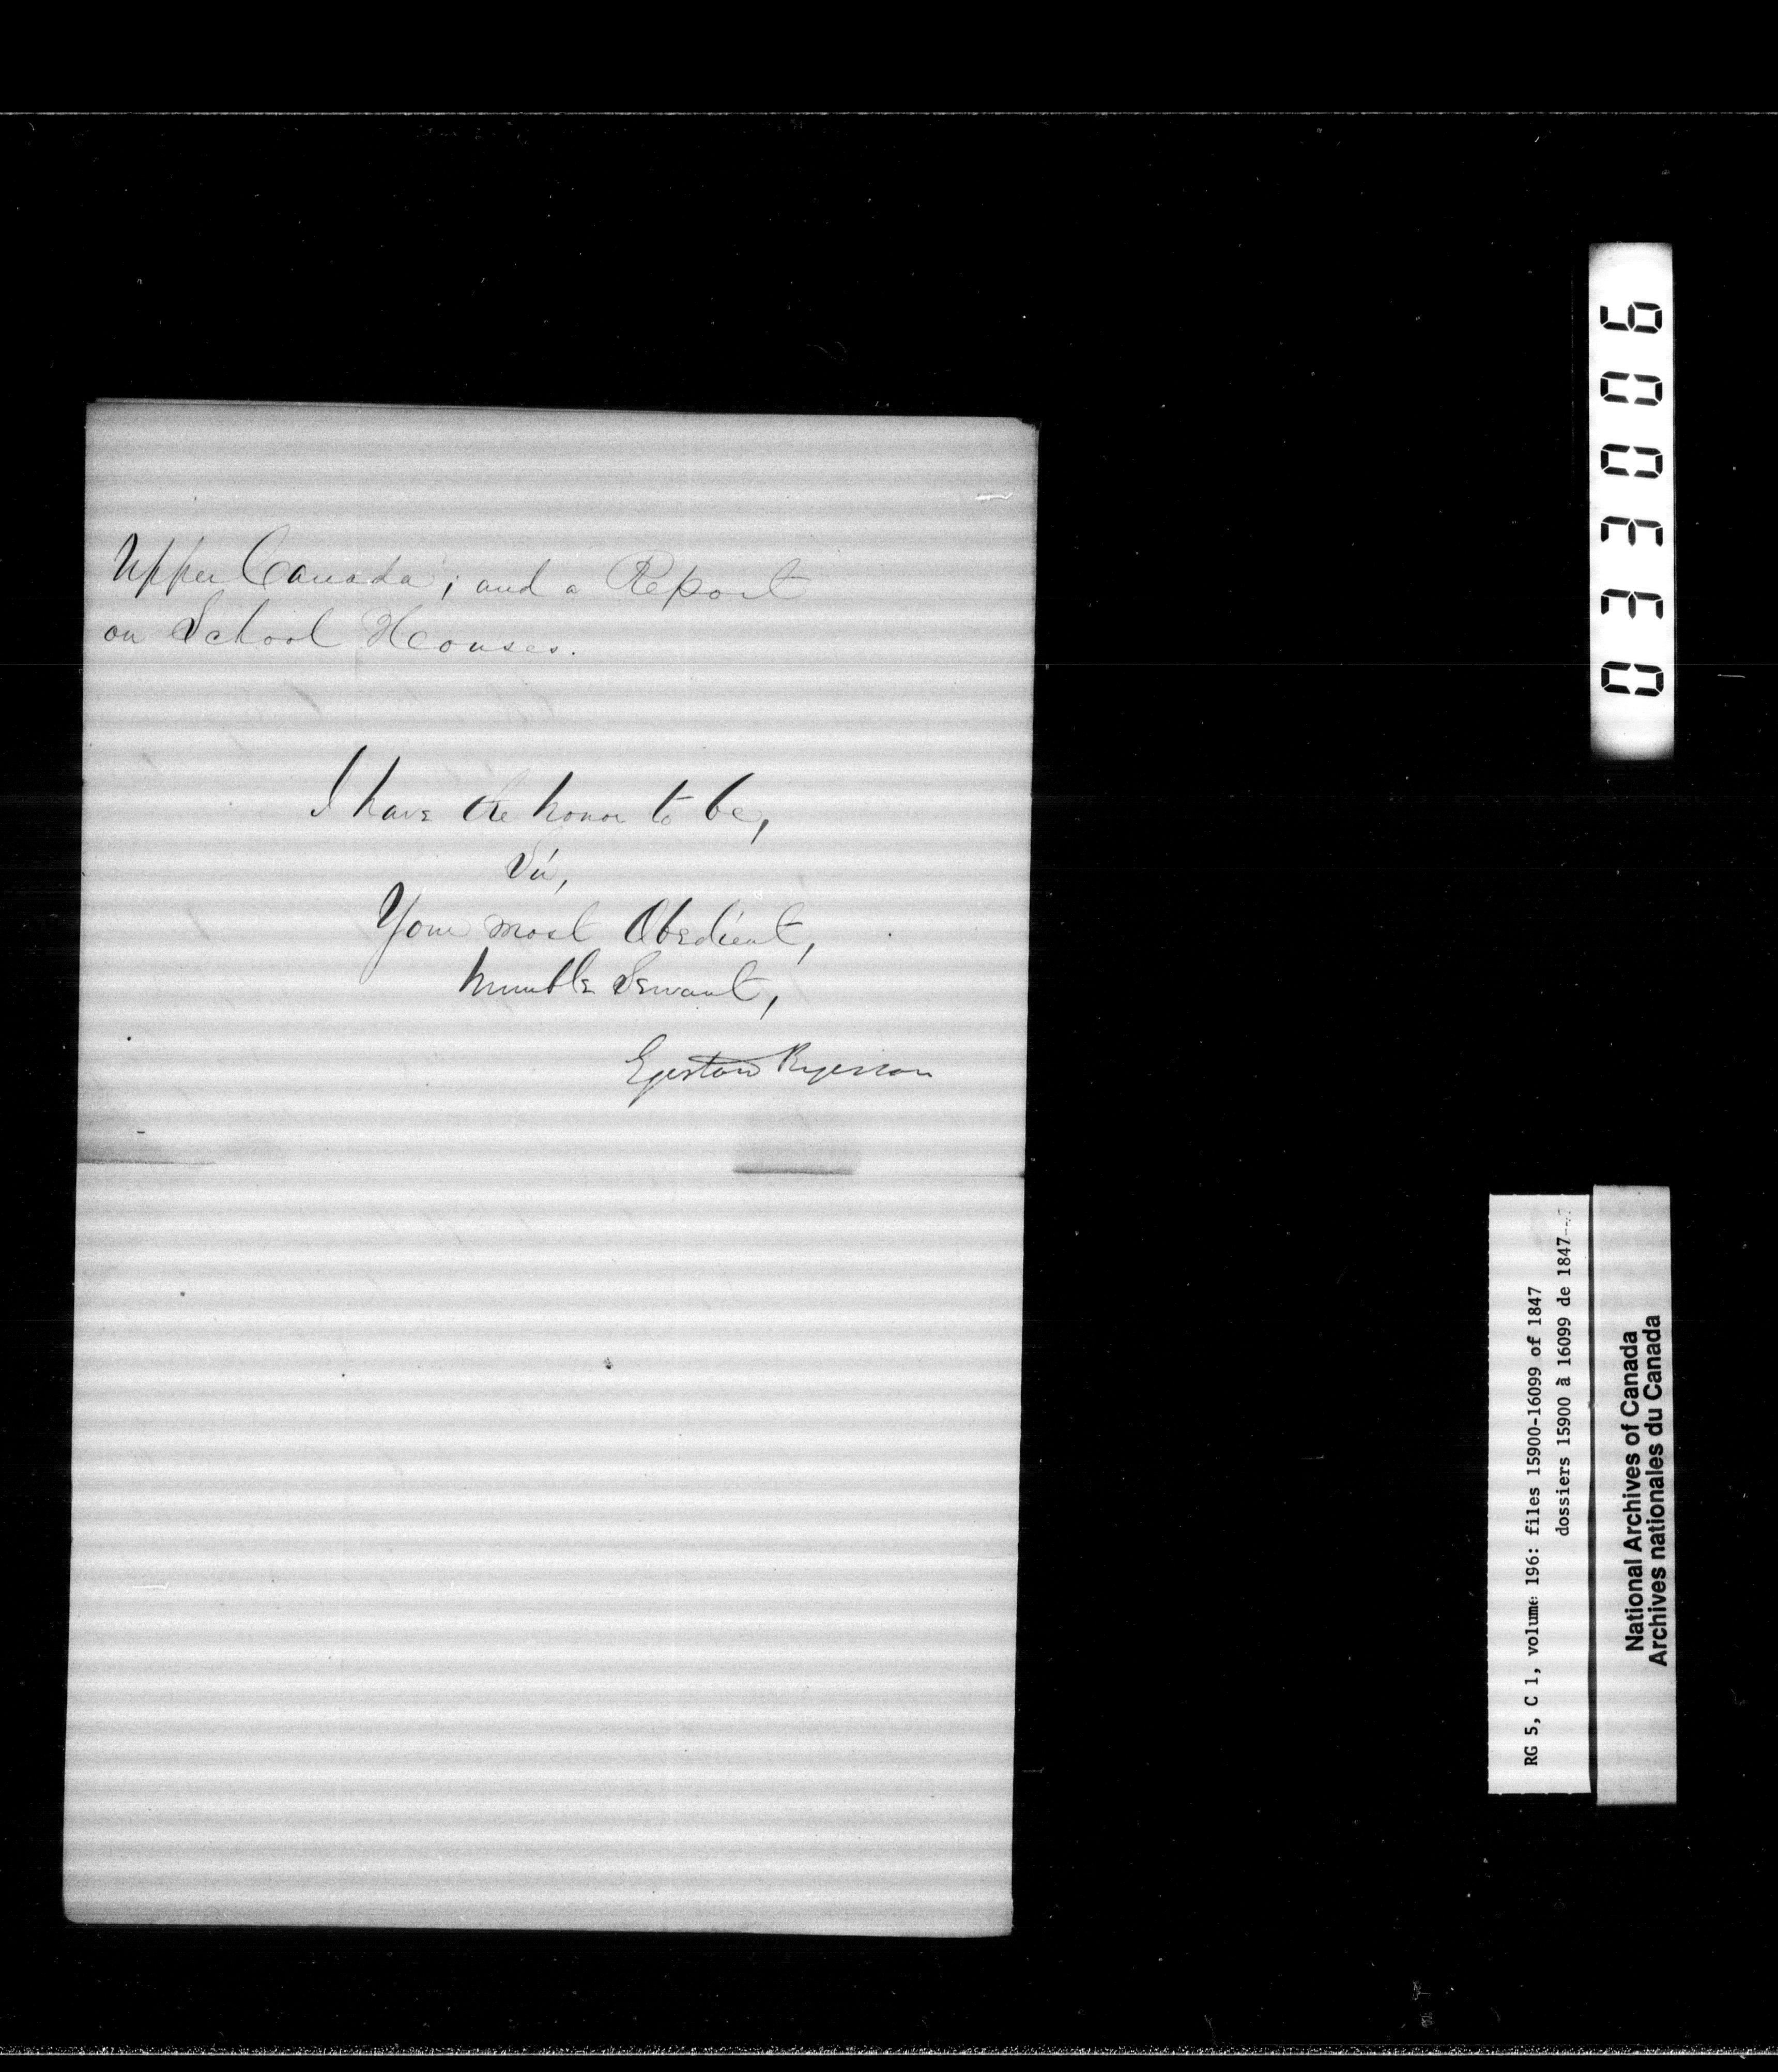 Upper Canada; and a Report
on School Houses.
I have the honor to be,
Sir,
Your most Obedient,
humble Servant,
Egerton Ryerson
033006
RG 5, C 1, volume 196: files 15900-16099 of 1847
dossiers 15900 à 16099 de 1847
National Archives of Canada
Archives nationales du Canada